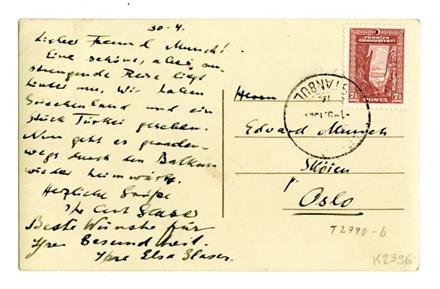 30-4.
Lieber Freund Munch!
Eine schöne, aber an-
strengende Reise liegt
hinter uns. Wir haben
Griechenland und ein
Stück Türkei gesehen.
Nun geht es geraden-
wegs durch den Balkan
wieder heimwärts.
Herzliche Grüße
Ihr Curt Glaser
Beste Wünsche für
Ihre Gesundheit.
Ihre Elsa Glaser.
TÜRKİYE
CUMHURİYETİ
7½ POSTA 7½
ISTANBUL
Herrn
Edvard Munch
Skøien
Oslo
T2790-b
K2396